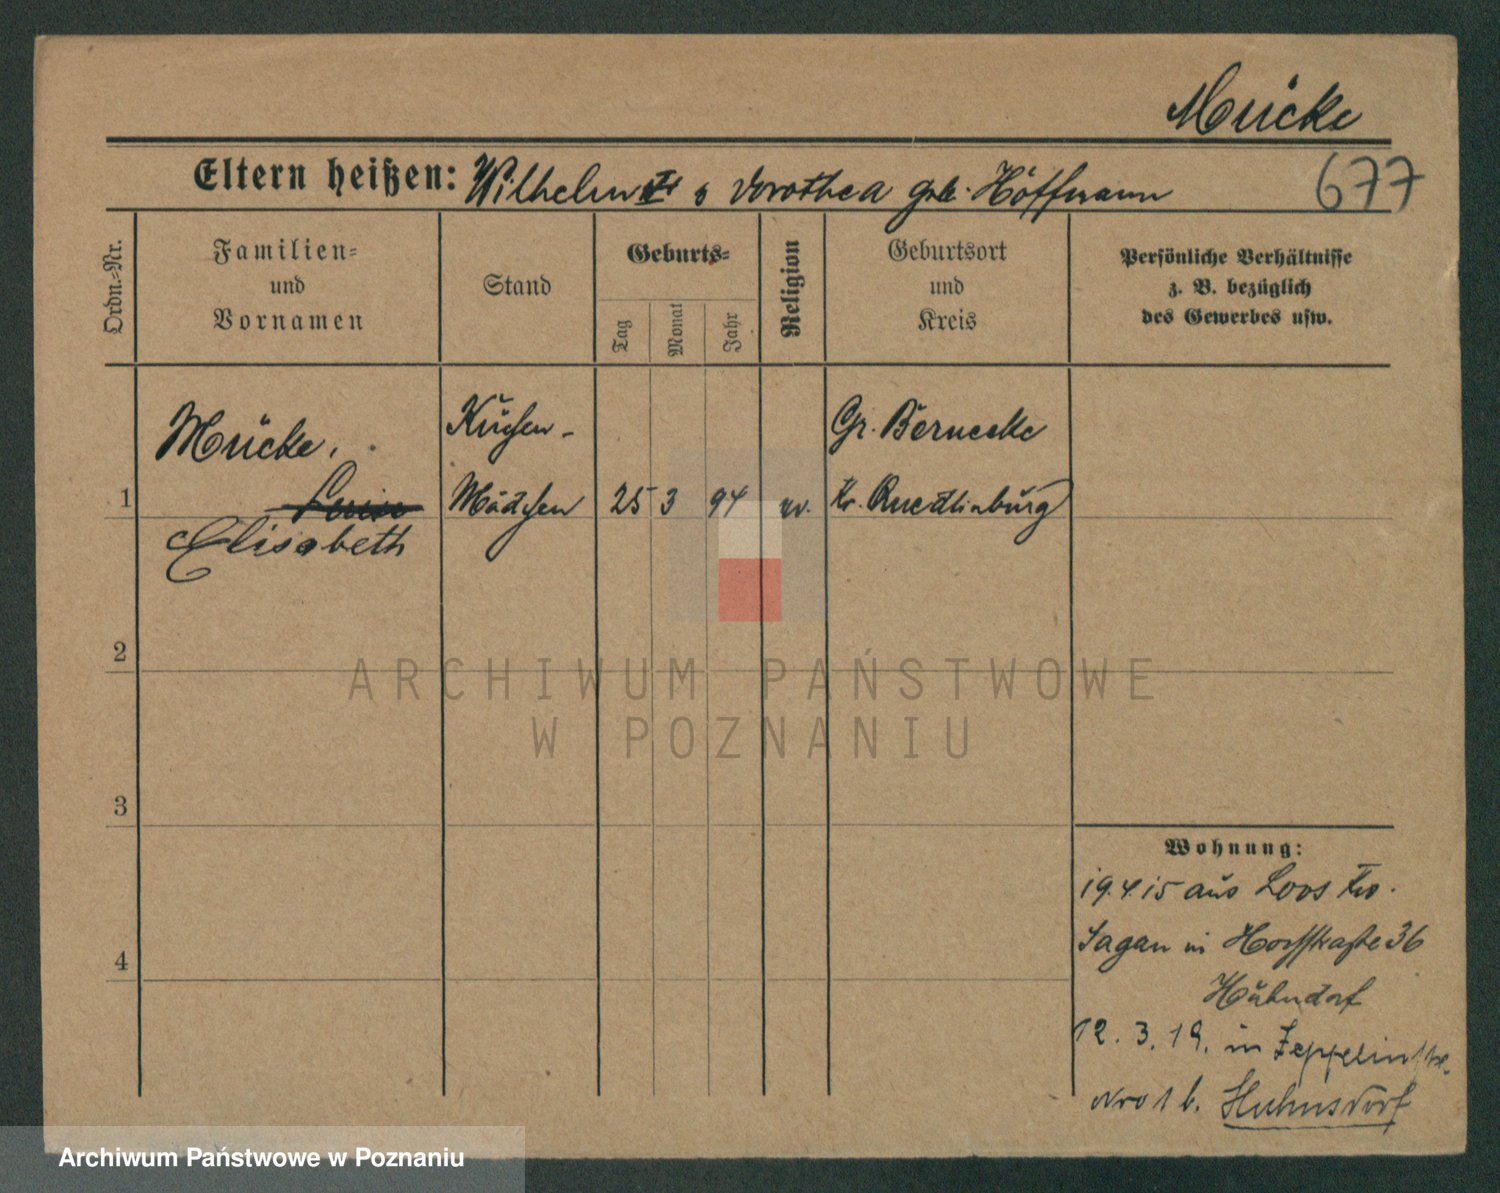 Mücke
Eltern heißen: Wilhelm & Dorothea geb. Höffmann
677
Ordn.=Nr.
Familien=
und
Vornamen
Stand
Geburts=
Tag
Monat
Jahr
Religion
Geburtsort
und
Kreis
Persönliche Verhältnisse
z. B. bezüglich
des Gewerbes usw.
Mücke,
Küchen-
Gr. Bernecke
1
Luise
Mädchen
25
3
94
ev.
Kr. Quedlinburg
Elisabeth
2
3
4
Wohnung:
19.4.15 aus Loos Kr.
Sagan in 36
12. 3. 19. in Zeppelinstr.
Nro 1 b.
ARCHIWUM PAŃSTWOWE
W POZNANIU
Archiwum Państwowe w Poznaniu